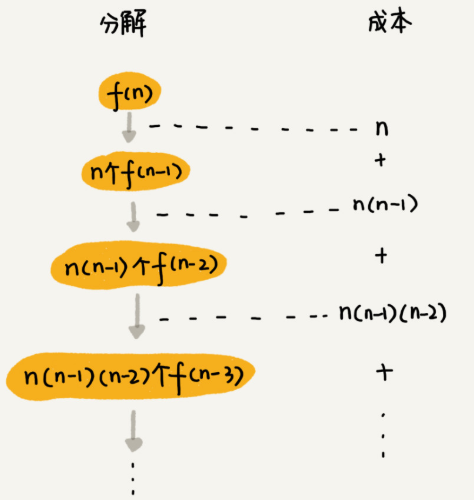 分解 成本
f(n)
n
+
n个f(n-1)
n(n-1)
+
n(n-1)个f(n-2)
n(n-1)(n-2)
+
n(n-1)(n-2)个f(n-3)